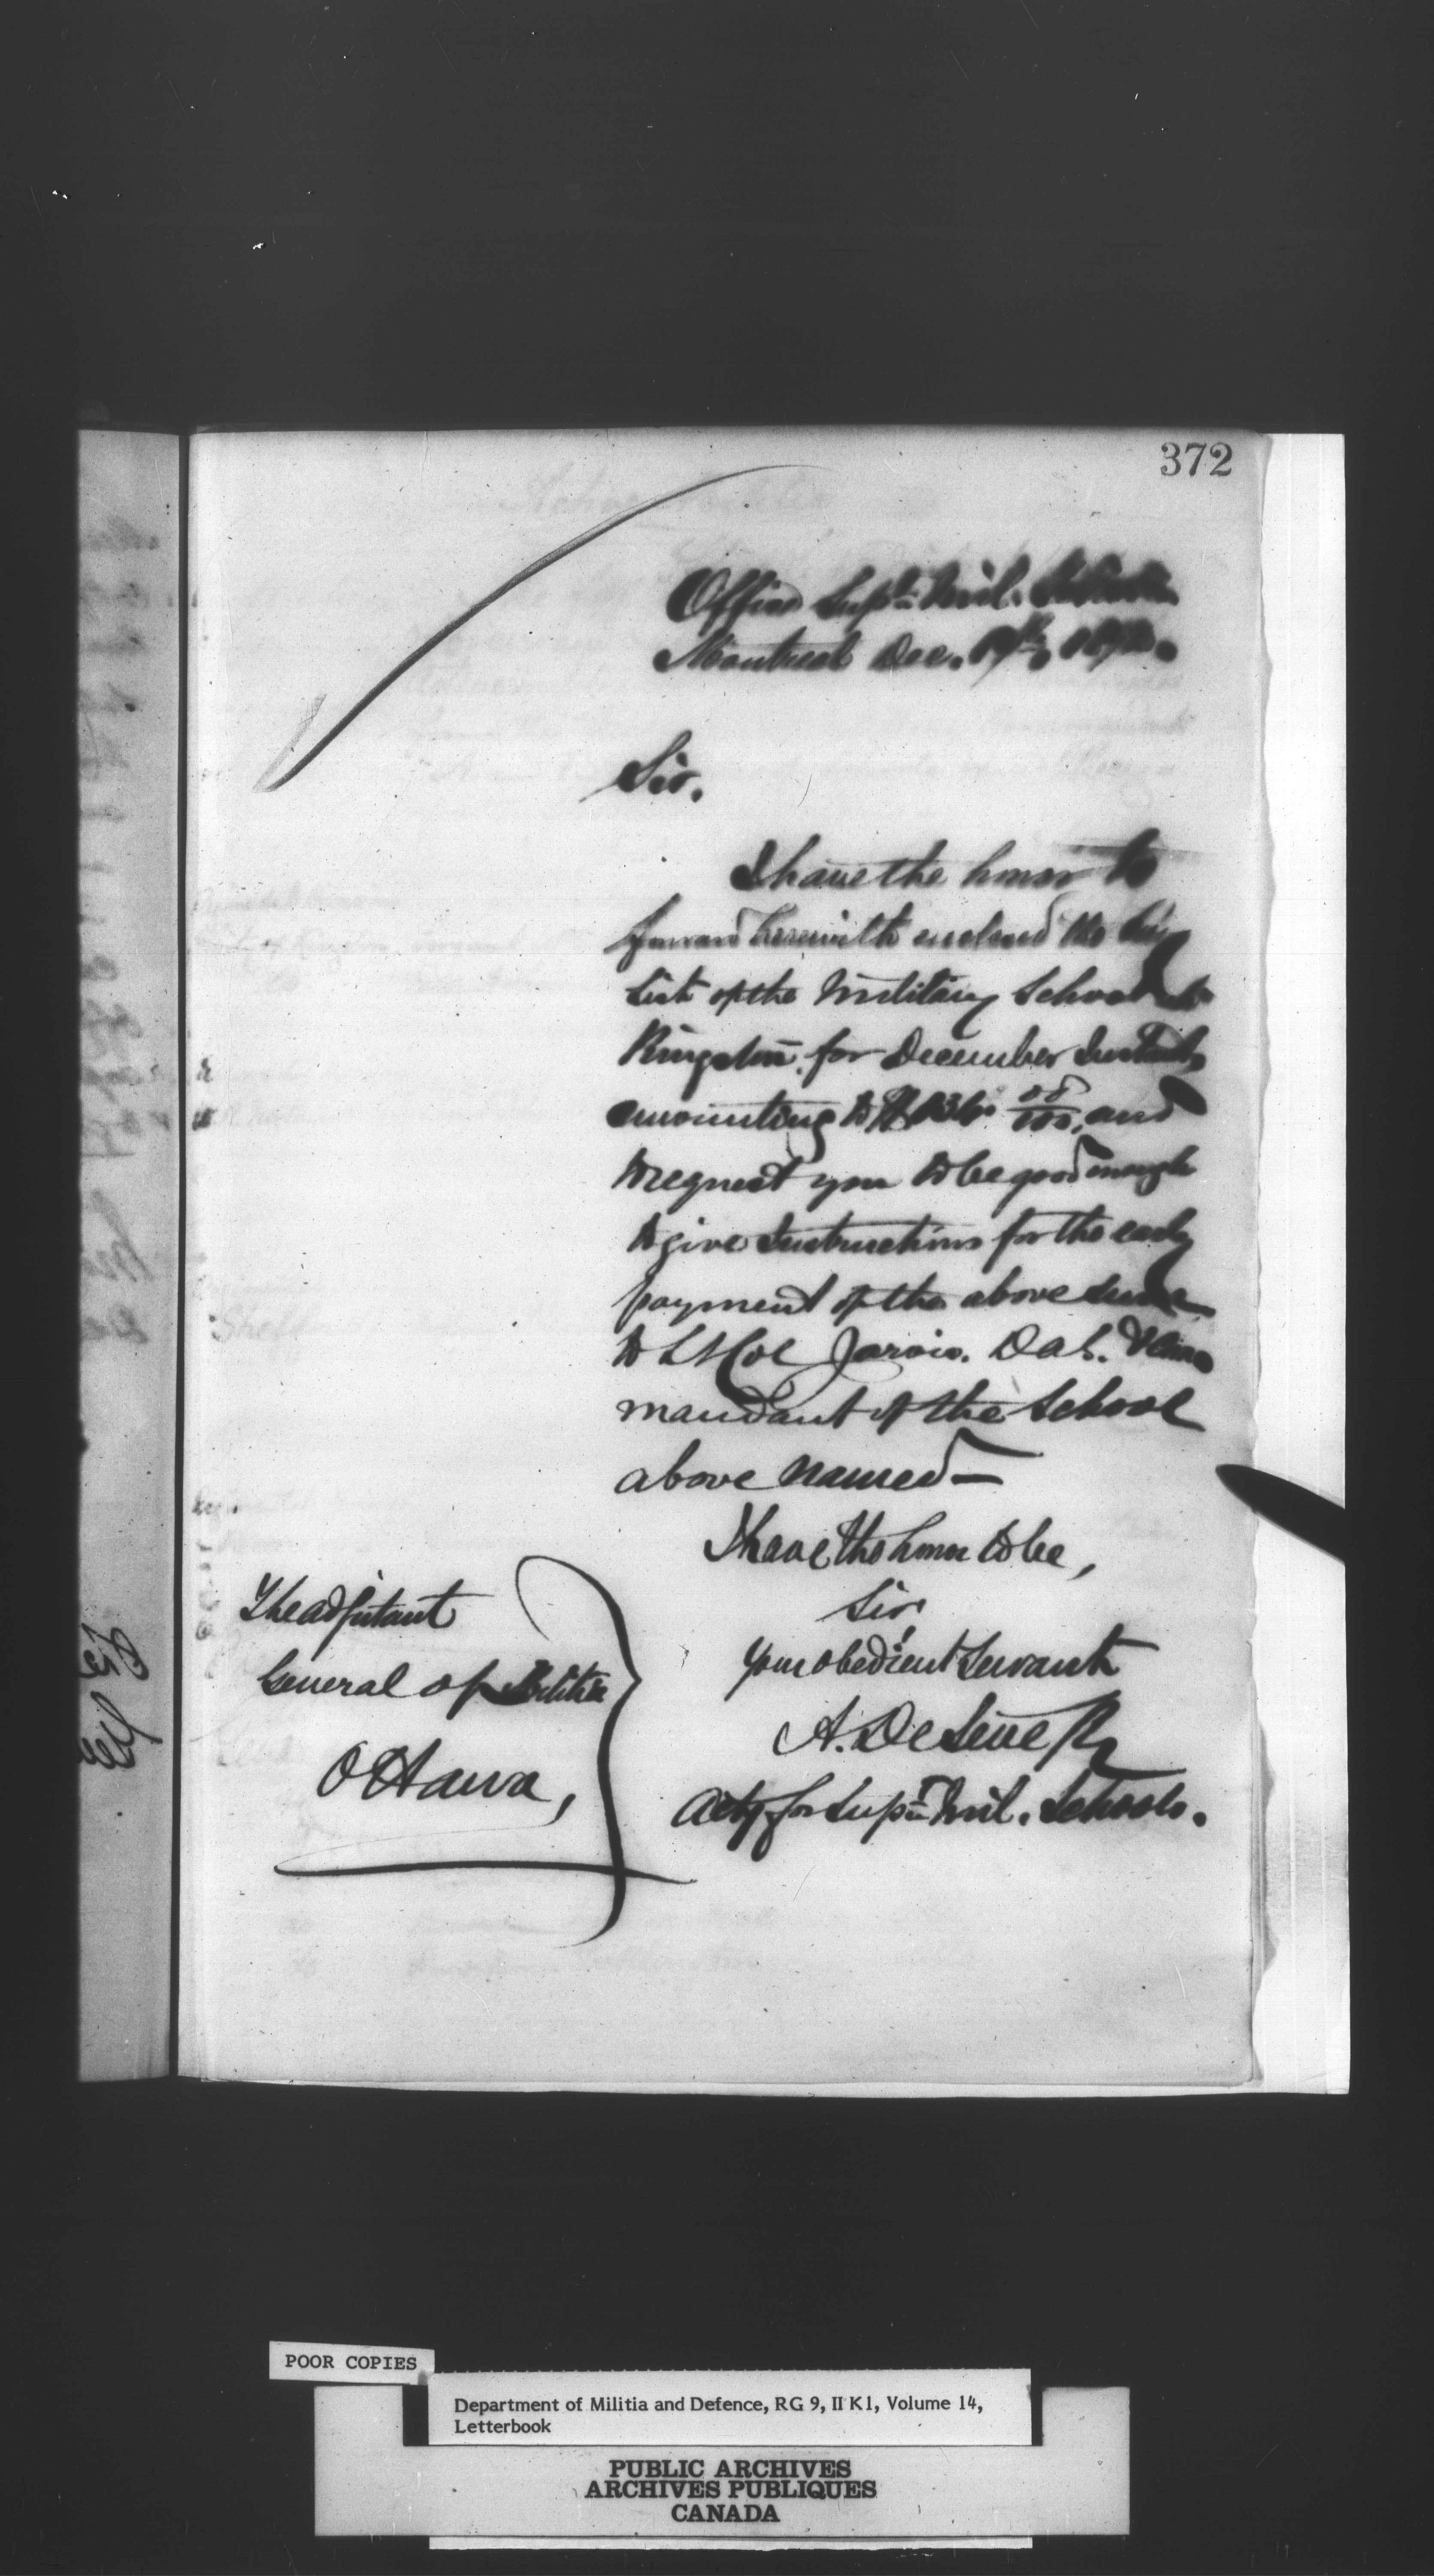 372
Office Supt Mil. Schools
Montreal Dec. 19th, 187
Sir.
I have the honor to
forward herewith enclosed the
List of the Military School at
Kingston for December Instant,
amounting to $ 08/100, and
to request you to be good enough
to give Instructions for the early
payment of the above sum
to Lt Col Jarvis. D A G. & Com
mandant of the School
above named —
I have the honor to be,
Sir
Your obedient Servant
A. De Seve
Actg for Supt Mil. Schools.
The Adjutant
General of Militia
Ottawa,
POOR COPIES
Department of Militia and Defence, RG 9, II K1, Volume 14,
Letterbook
PUBLIC ARCHIVES
ARCHIVES PUBLIQUES
CANADA